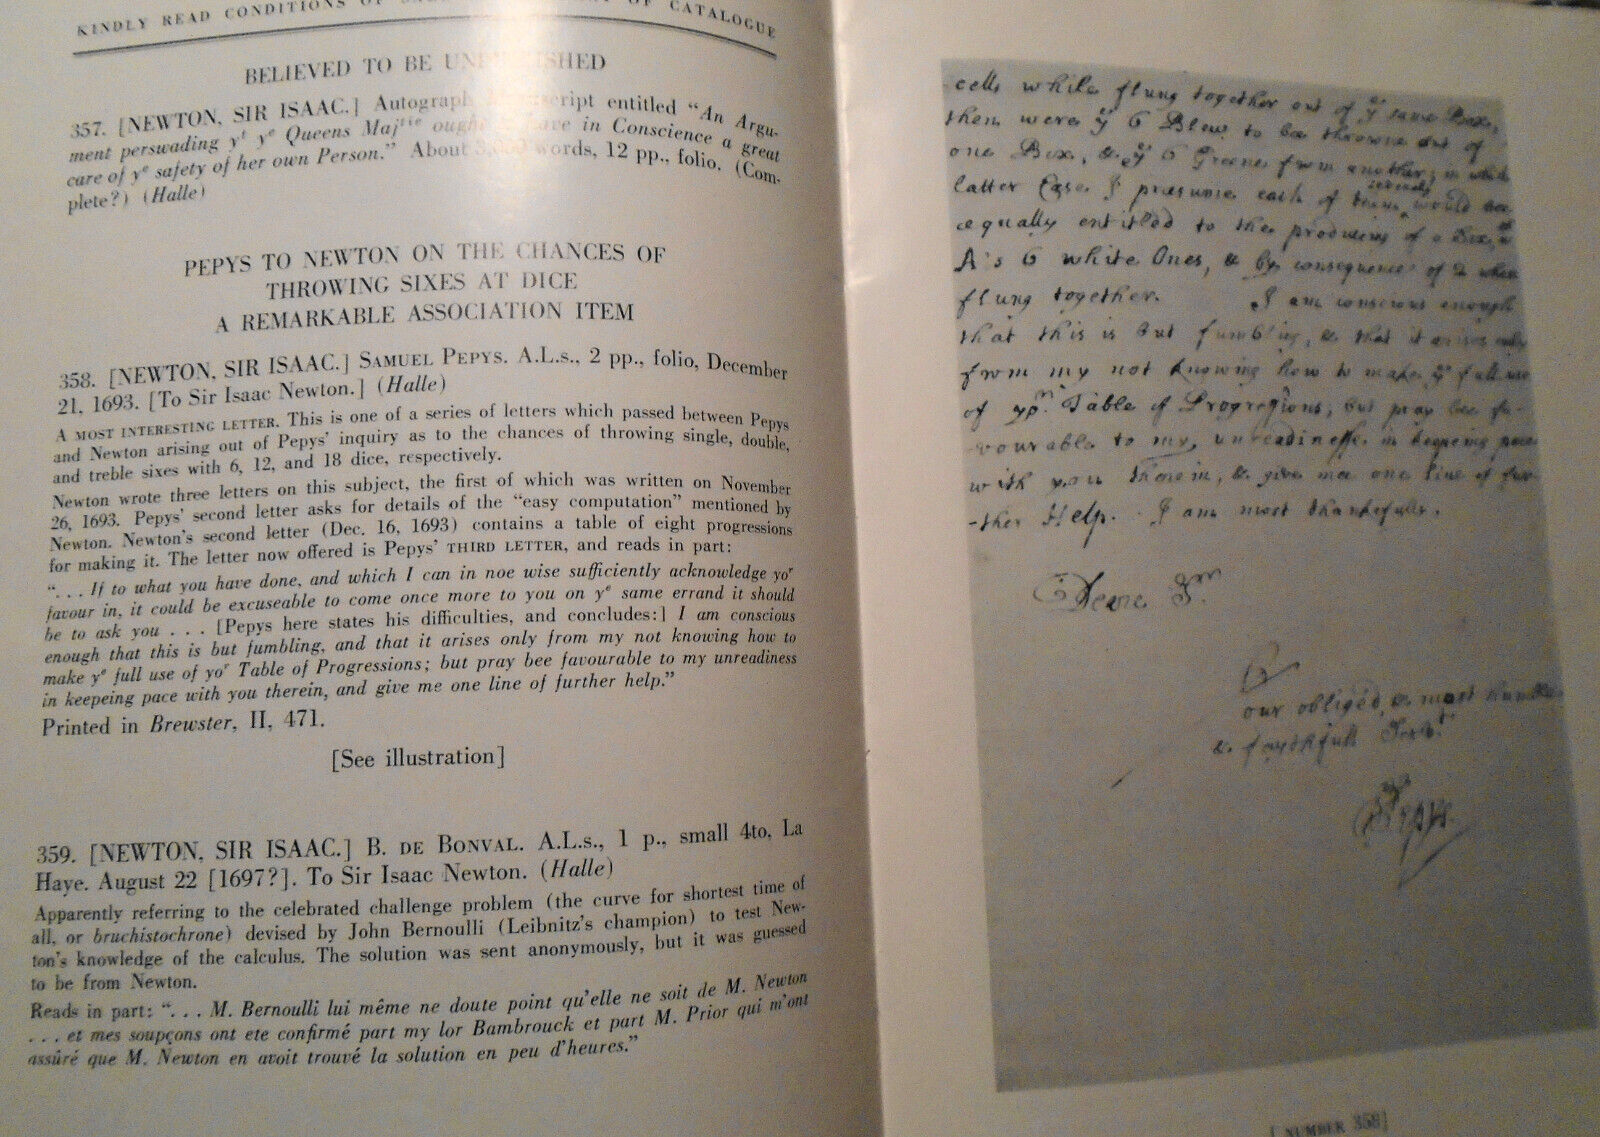 KINDLY READ CONDITIONS OF OF CATALOGUE
BELIEVED TO BE
357. [NEWTON, SIR ISAAC.] Autograph entitled "An Argu-
ment perswading yt ye Queens Majtie in Conscience a great
care of ye safety of her own Person." About words, 12 pp., folio. (Com-
plete?) (Halle)
PEPYS TO NEWTON ON THE CHANCES OF
THROWING SIXES AT DICE
A REMARKABLE ASSOCIATION ITEM
358. [NEWTON, SIR ISAAC.] SAMUEL PEPYS. A.L.s., 2 pp., folio, December
21, 1693. [To Sir Isaac Newton.] (Halle)
A MOST INTERESTING LETTER. This is one of a series of letters which passed between Pepys
and Newton arising out of Pepys' inquiry as to the chances of throwing single, double,
and treble sixes with 6, 12, and 18 dice, respectively.
Newton wrote three letters on this subject, the first of which was written on November
26, 1693. Pepys' second letter asks for details of the "easy computation" mentioned by
Newton. Newton's second letter (Dec. 16, 1693) contains a table of eight progressions
for making it. The letter now offered is Pepys' THIRD LETTER, and reads in part:
". . . If to what you have done, and which I can in noe wise sufficiently acknowledge yor
favour in, it could be excuseable to come once more to you on ye same errand it should
be to ask you . . . [Pepys here states his difficulties, and concludes:] I am conscious
enough that this is but fumbling, and that it arises only from my not knowing how to
make ye full use of yor Table of Progressions; but pray bee favourable to my unreadiness
in keepeing pace with you therein, and give me one line of further help."
Printed in Brewster, II, 471.
[See illustration]
359. [NEWTON, SIR ISAAC.] B. DE BONVAL. A.L.s., 1 p., small 4to, La
Haye. August 22 [1697?]. To Sir Isaac Newton. (Halle)
Apparently referring to the celebrated challenge problem (the curve for shortest time of
all, or bruchistochrone) devised by John Bernoulli (Leibnitz's champion) to test New-
ton's knowledge of the calculus. The solution was sent anonymously, but it was guessed
to be from Newton.
Reads in part: ". . . M. Bernoulli lui même ne doute point qu'elle ne soit de M. Newton
. . . et mes soupçons ont ete confirmé part my lor Bambrouck et part M. Prior qui m'ont
assûré que M. Newton en avoit trouvé la solution en peu d'heures."
cells while flung together out of ye same Box,
them were ye 6 Blew to be throwne out of
one Box, & ye 6 Greene from another; in which
latter Case I presume each of them severally would bee
equally entitled to the produceing of a Six,
A's 6 white Ones, & by consequence of 2 when
flung together. I am conscious enough
that this is but fumbling, & that it arises only
from my not knowing how to make ye full use
of yor Table of Progressions; but pray bee fa-
vourable to my unreadinesse in keepeing pace
with you therein, & give me one line of fur-
-ther Help. I am most thankefully,
Deare Sr
Your obliged & most humble
& faythfull Servt
SPepys.
[NUMBER 358]